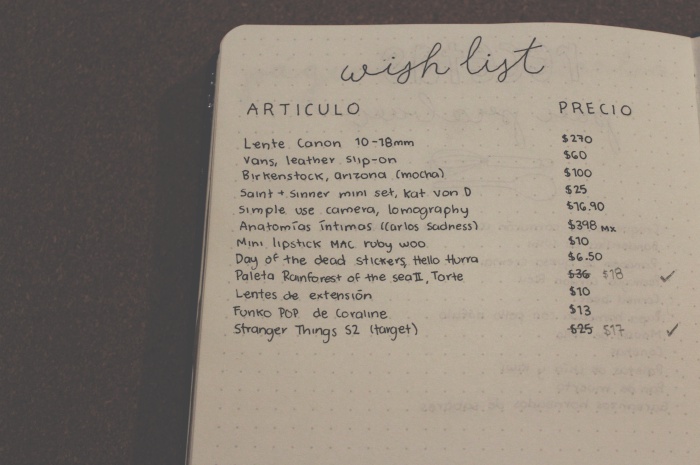 wish list
ARTICULO PRECIO
Lente Canon 10-18mm $270
Vans, leather slip-on $60
Birkenstock, arizona (mocha) $100
Saint + Sinner mini set, Kat von D $25
Simple use camera, lomography $16.90
Anatomías íntimas (Carlos Sadness) $398 MX
Mini lipstick MAC ruby woo $10
Day of the dead stickers, Hello Hurra $6.50
Paleta Rainforest of the sea II, Tarte $36 $18 ✓
Lentes de extensión $10
Funko POP de Coraline $13
Stranger Things S2 (target) $25 $17 ✓